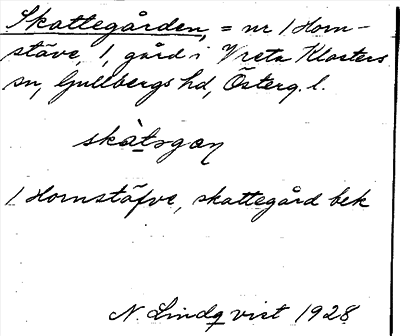 Skattegården, = nr 1 Horn-
stäve, 1, gård i Vreta Klosters
sn, Gullbergs hd, Österg. l.
skàtsgaṇ
1 Hornstäfve, skattegård bek
N. Lindqvist 1928